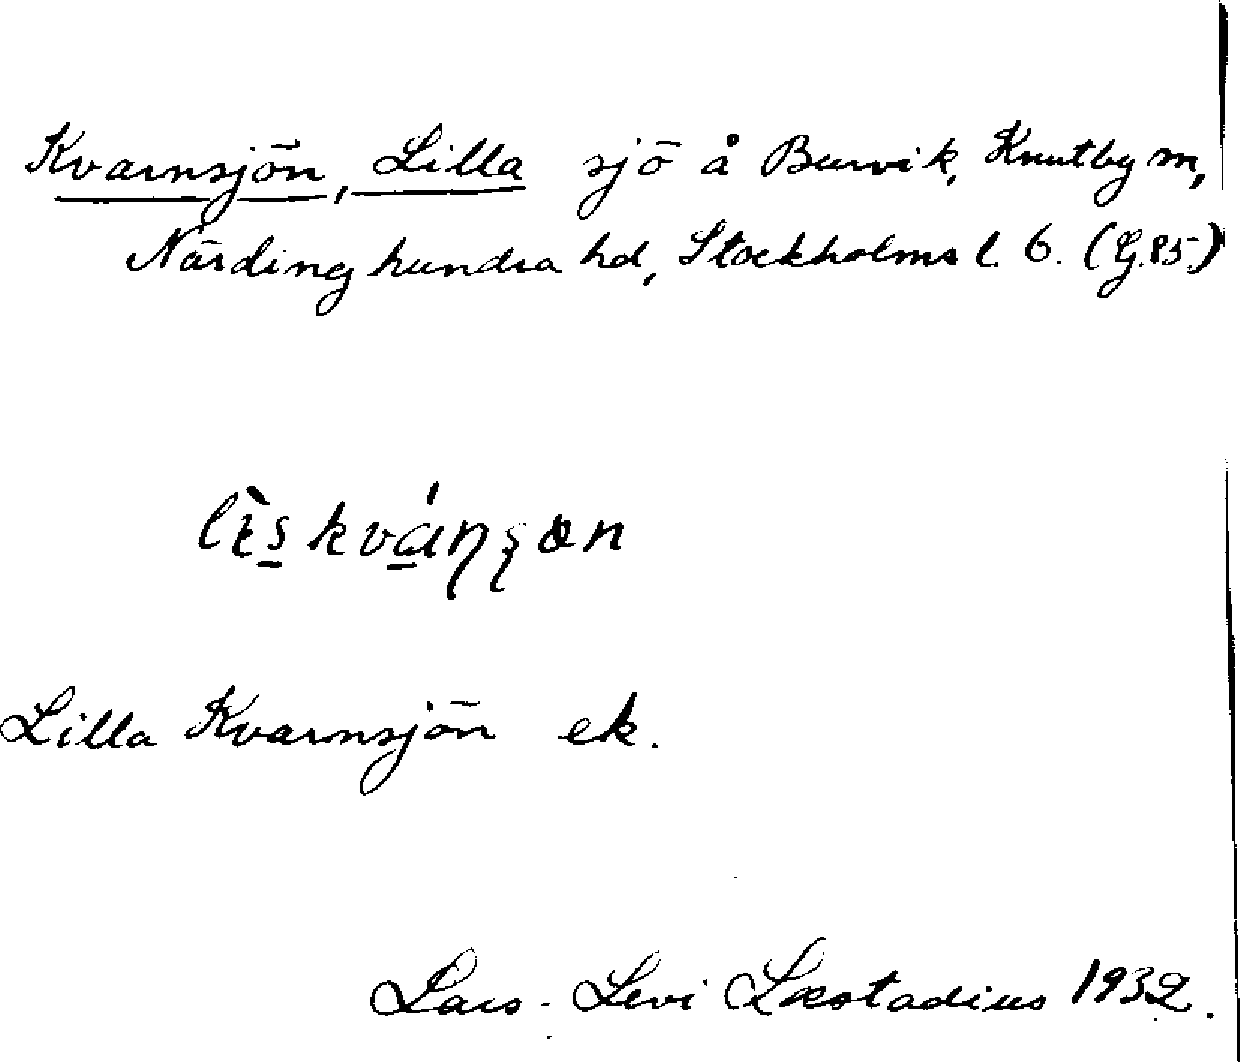 Kvarnsjön, Lilla sjö å Burvik, Knutby sn,
Närdinghundra hd, Stockholms l. 6. (G.85.)
Lilla Kvarnsjön ek.
Lars-Levi Læstadius 1932.